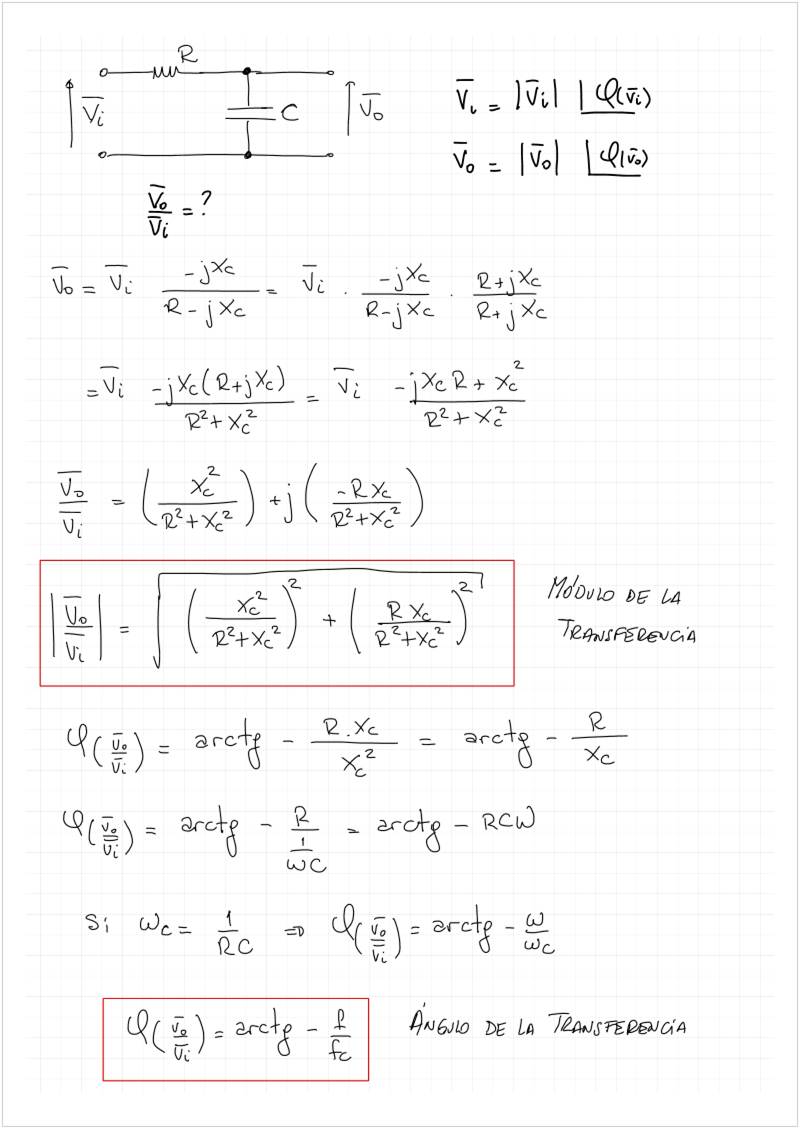 R
V̅i
C
V̅o
V̅i = |V̅i| |φ(v̅i)
V̅o = |V̅o| |φ(v̅o)
V̅o/V̅i = ?
V̅o = V̅i -jXc/(R - jXc) = V̅i · -jXc/(R - jXc) · (R + jXc)/(R + jXc)
= V̅i -jXc(R + jXc)/(R² + Xc²) = V̅i (-jXcR + Xc²)/(R² + Xc²)
V̅o/V̅i = (Xc²/(R² + Xc²)) + j(-RXc/(R² + Xc²))
|V̅o/V̅i| = √((Xc²/(R² + Xc²))² + (RXc/(R² + Xc²))²)
MÓDULO DE LA
TRANSFERENCIA
φ(v̅o/v̅i) = arctg - R.Xc/Xc² = arctg - R/Xc
φ(v̅o/v̅i) = arctg - R/(1/ωC) = arctg - RCω
Si ωc = 1/RC ⇒ φ(v̅o/v̅i) = arctg - ω/ωc
φ(v̅o/v̅i) = arctg - f/fc
ÁNGULO DE LA TRANSFERENCIA